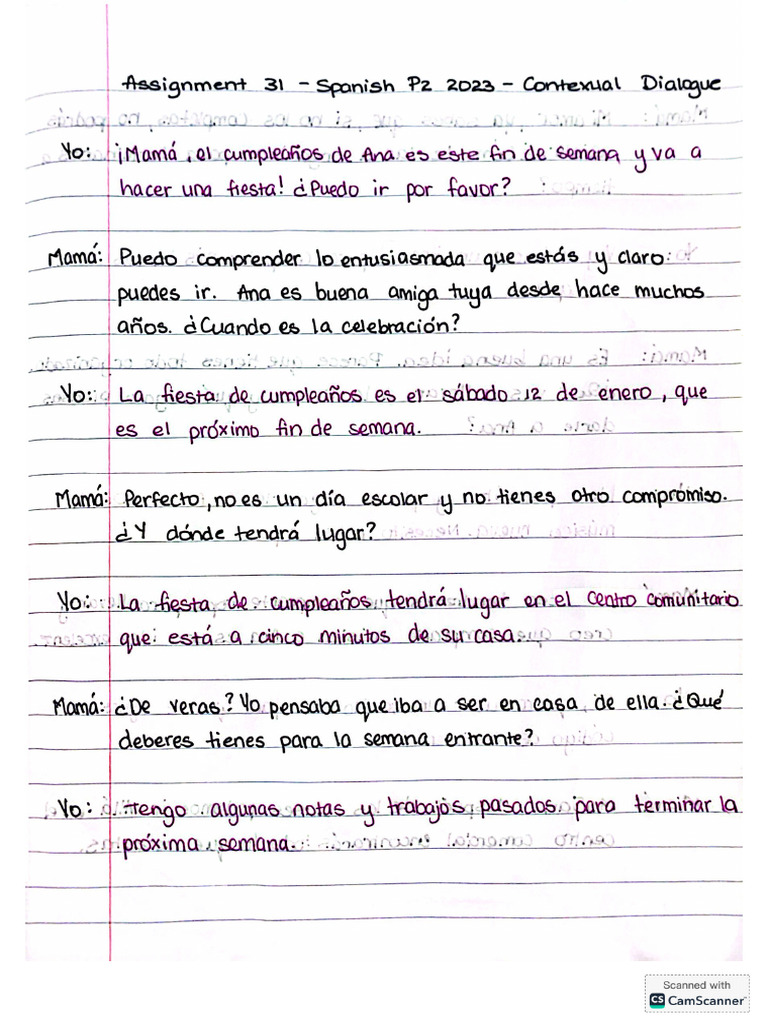 Assignment 31 - Spanish P2 2023 - Contexual Dialogue
Yo: ¡Mamá, el cumpleaños de Ana es este fin de semana y va a
hacer una fiesta! ¿Puedo ir por favor?
Mamá: Puedo comprender lo entusiasmada que estás y claro
puedes ir. Ana es buena amiga tuya desde hace muchos
años. ¿Cuando es la celebración?
Yo: La fiesta de cumpleaños es el sábado 12 de enero, que
es el próximo fin de semana.
Mamá: Perfecto, no es un día escolar y no tienes otro compromiso.
¿Y dónde tendrá lugar?
Yo: La fiesta de cumpleaños tendrá lugar en el centro comunitario
que está a cinco minutos de su casa.
Mamá: ¿De veras? Yo pensaba que iba a ser en casa de ella. ¿Qué
deberes tienes para la semana entrante?
Yo: Tengo algunas notas y trabajos pasados para terminar la
próxima semana.
Scanned with
CS CamScanner